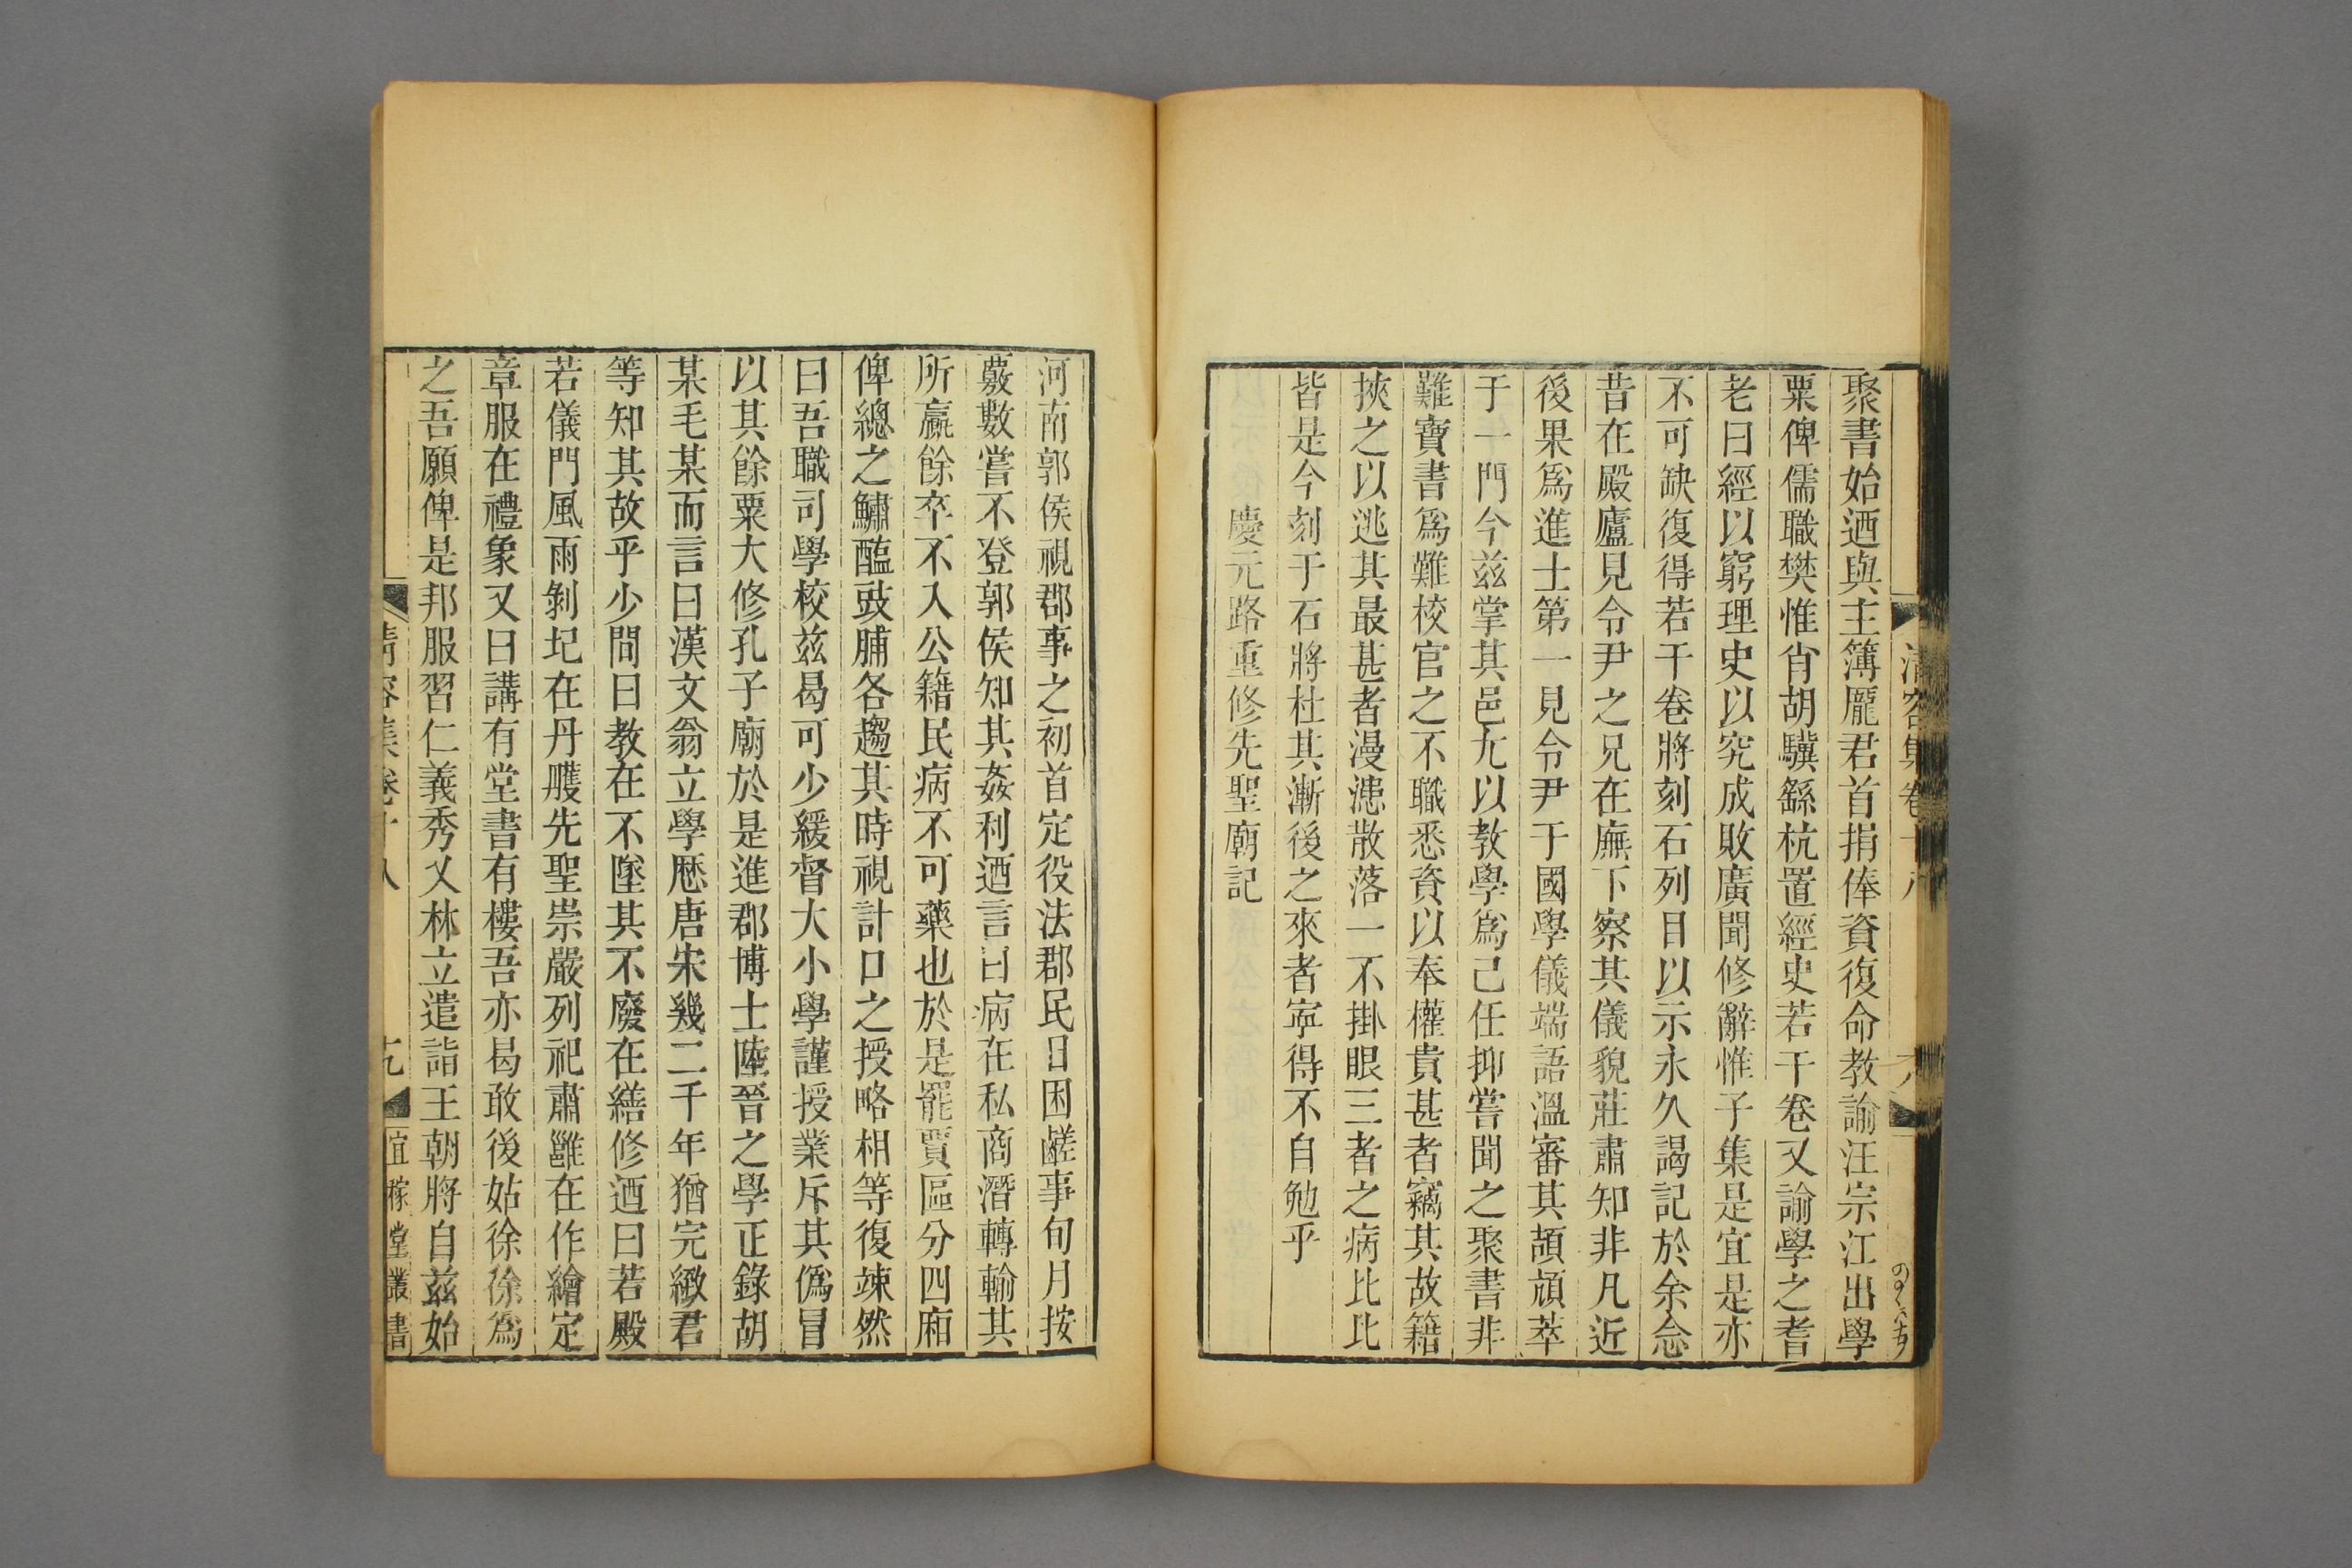 聚書始迺與主簿龎君首捐俸資復命教諭汪宗江出學
粟俾儒職樊惟肖胡驥繇杭置經史若干卷又諭學之耆
老曰經以窮理史以究成敗廣聞修辭惟子集是宜是亦
不可缺復得若干卷將刻石列目以示永久謁記於余念
昔在殿廬見令尹之兄在廡下察其儀貌莊肅知非凡近
後果爲進士第一見令尹于國學儀端語溫審其頡頏萃
于一門今兹掌其邑尢以教學爲己任抑嘗聞之聚書非
難寶書爲難校官之不職悉資以奉權貴甚者竊其故籍
挾之以逃其最甚者漫漶散落一不掛眼三者之病比比
皆是今刻于石將杜其漸後之來者寜得不自勉乎
慶元路重修先聖廟記
清容集卷十八
八
河南郭侯視郡事之初首定役法郡民日困鹺事旬月按
覈數嘗不登郭侯知其姦利迺言曰病在私商潛轉輸其
所贏餘卒不入公籍民病不可藥也於是罷賈區分四廂
俾總之鱐醢豉脯各趨其時視計口之授略相等復竦然
曰吾職司學校兹曷可少緩督大小學謹授業斥其僞冒
以其餘粟大修孔子廟於是進郡博士陸晉之學正錄胡
某毛某而言曰漢文翁立學厯唐宋幾二千年猶完緻君
等知其故乎少間曰教在不墜其不廢在繕修迺曰若殿
若儀門風雨剝圮在丹雘先聖崇嚴列祀肅雝在作繪定
章服在禮象又曰講有堂書有樓吾亦曷敢後姑徐徐爲
之吾願俾是邦服習仁義秀乂林立遣詣王朝將自兹始
清容集卷十八
九
宜稼堂叢書